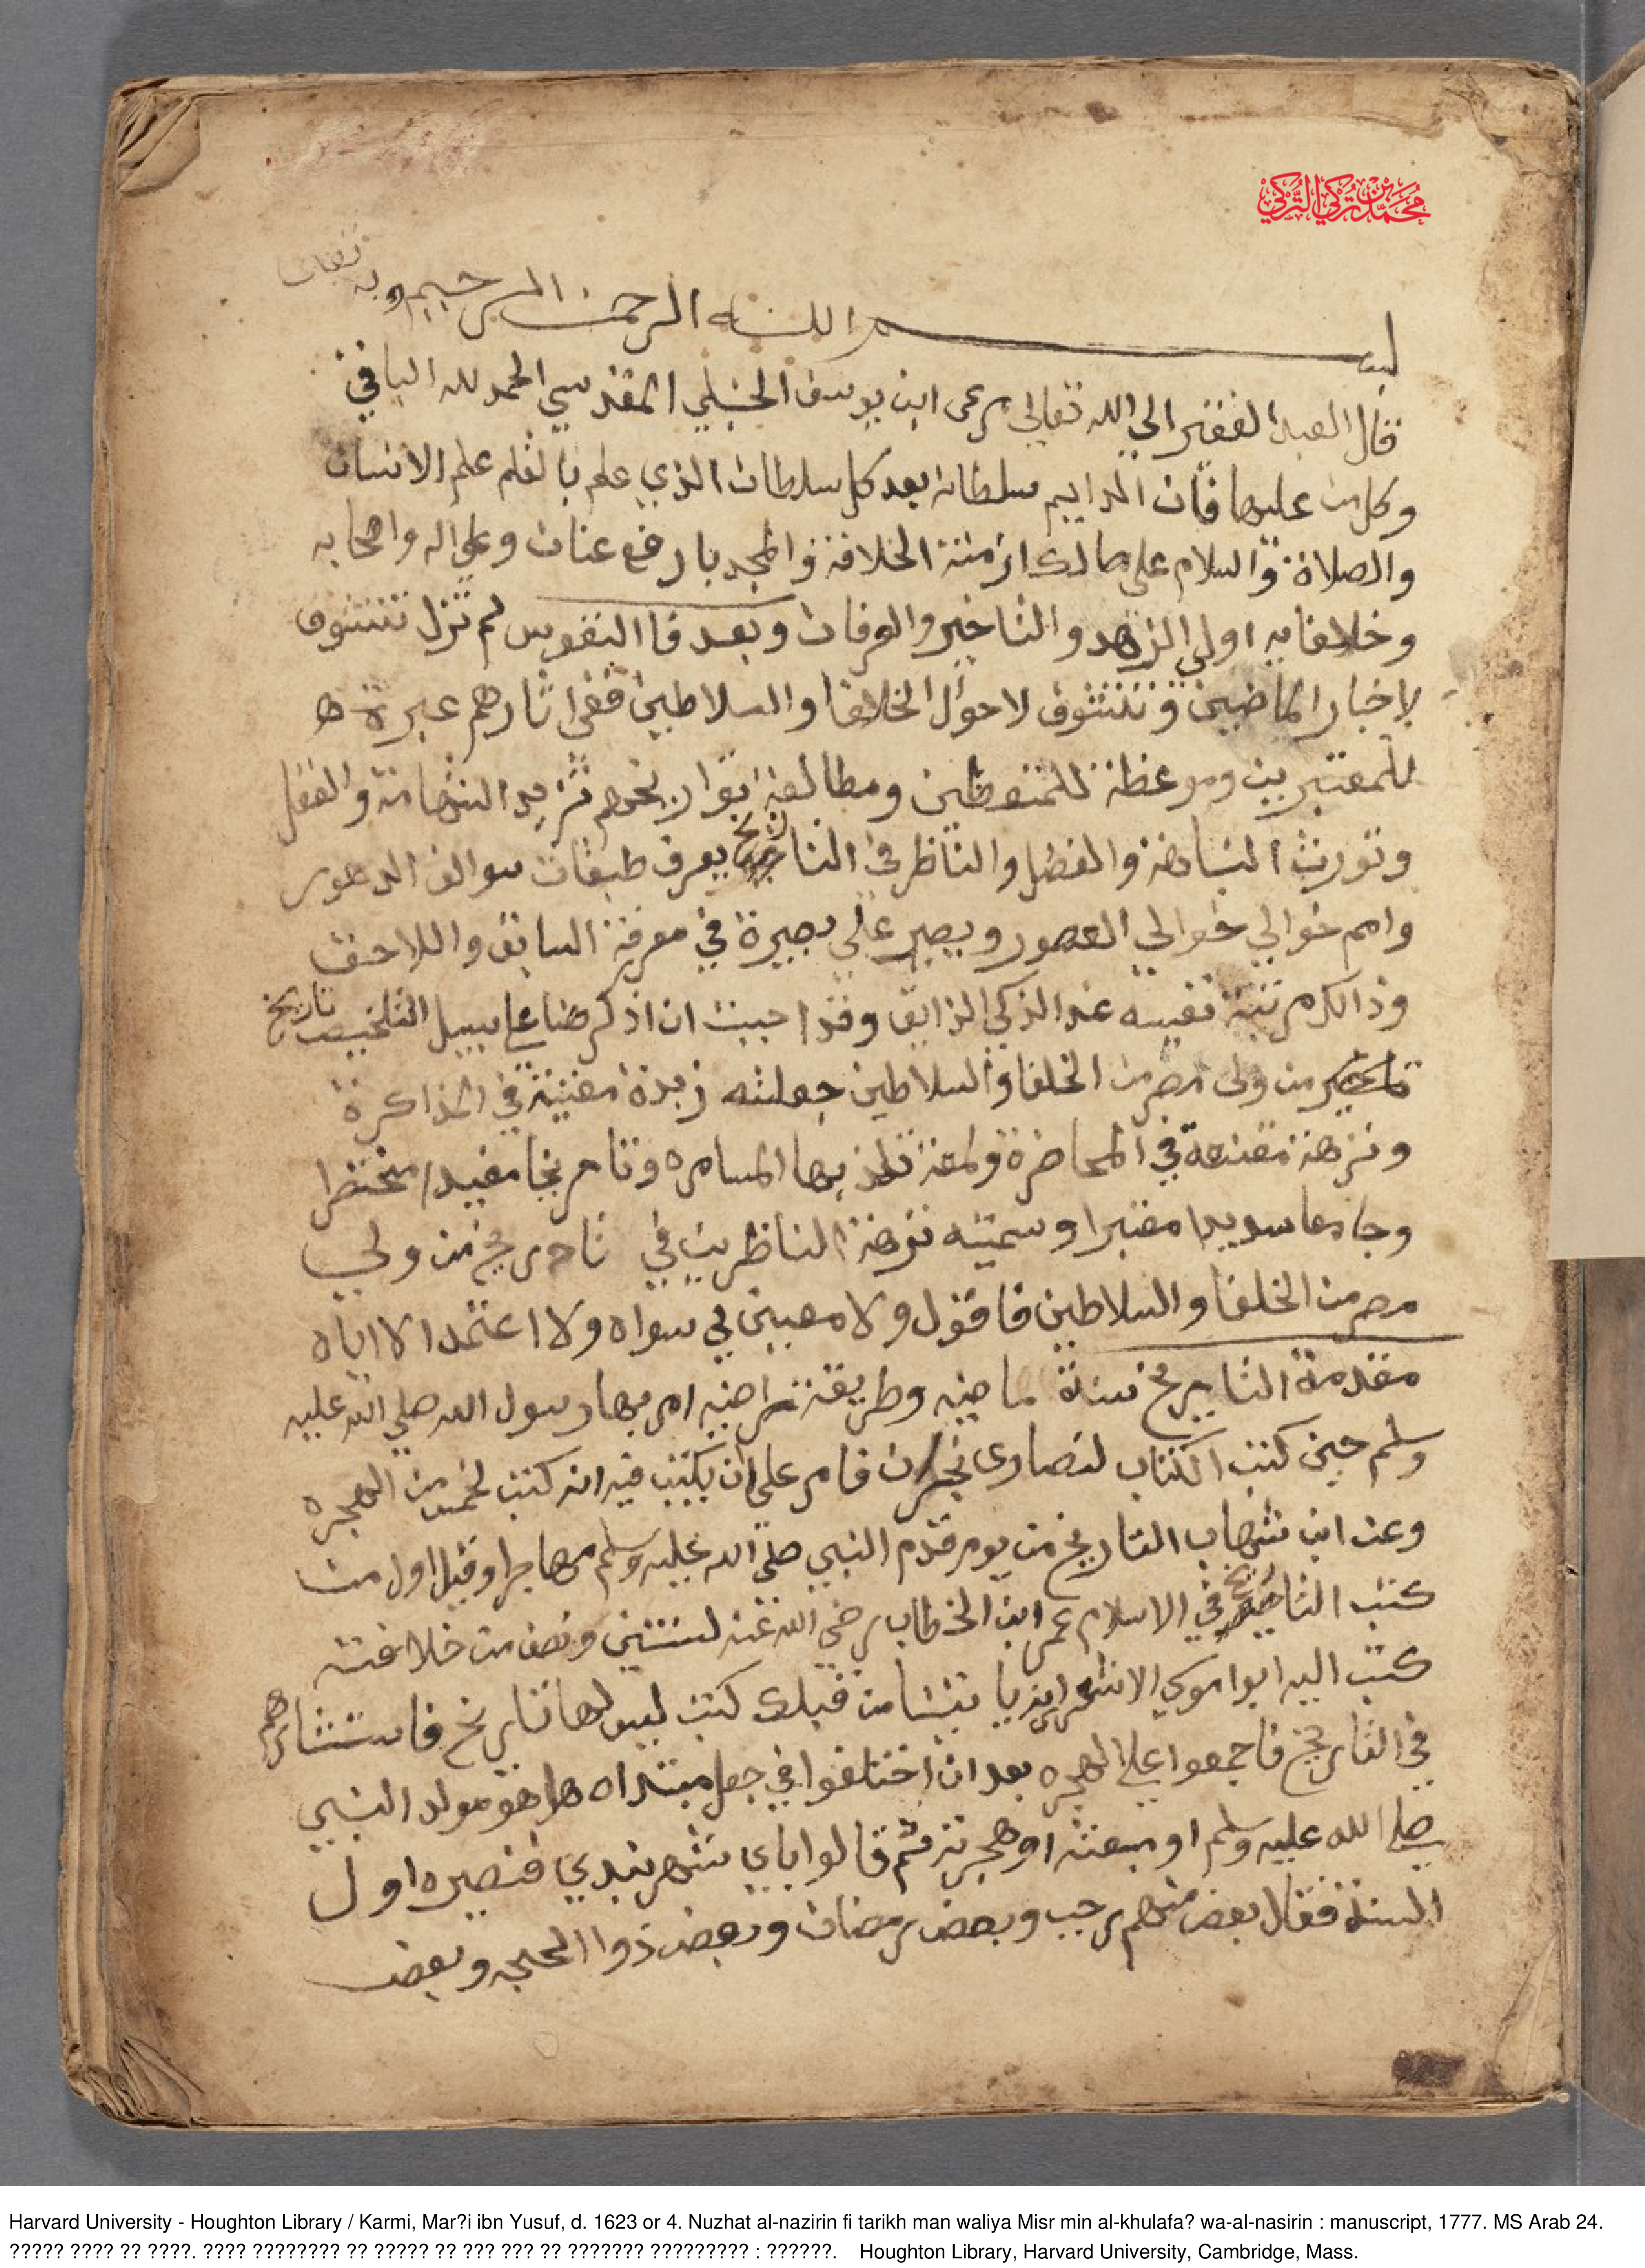 محمد بن تركي التركي
بسم الله الرحمن الرحيم وبه
قال العبد الفقير الي الله تعالي مرعي ابن يوسف الحنبلي المقدسي الحمد لله الباقي
وكل من عليها فان الدايم سلطانه بعد كل سلطان الذي علم بالقلم علم الانسان
والصلاة والسلام علي مالك ازمنة الخلافة والمجد بارفع عنان وعلي اله واصحابه
وخلافايه اولي الزهد والتاخير والعرفان وبعد فا النفوس لم تزل تتشوف
لاخبار الماضين وتتشوف لاحوال الخلافا والسلاطين ففي اثارهم عبرة ه
للمعتبرين وموعظة للمتعوظين ومطالعة تواريخهم تزيد الشهامة والعقل
وتورث النباهة والفضل والناظر في التاريخ يعرف طبقات سوالف الدهور
وامم خوالي خوالي العصور ويصير علي بصيرة في معرفة السابق واللاحق
وذالك مرتبة نفيسه عند الذكي الذايق وقد احببت ان اذكر هنا علي سبيل التلخيص تاريخ
من ولي مصر من الخلفا والسلاطين جعلته زبدة مغنية في المذاكرة
ونزهة مقنعة في المحاضرة ولمعة تلذ بها المسامره وتاريخا مفيدا مختصرا
وجامعا سديدا معتبرا وسميته نزهة الناظرين في تاريخ من ولي
مصر من الخلفا والسلاطين فاقول ولا معين لي سواه ولا اعتمد الا اياه
مقدمة التاريخ سنة ماضيه وطريقة راضيه امر بها رسول الله صلي الله عليه
وسلم حين كتب الكتاب لنصاري نجران فامر علي ان يكتب فيه انه كتب لخمس من الهجره
وعن ابن شهاب التاريخ من يوم قدم النبي صلي الله عليه وسلم مهاجرا وقيل اول من
كتب التاريخ في الاسلام عمر ابن الخطاب رضي الله عنه لسنتين ونصف من خلافته
كتب اليه ابوا موسي الاشعري انه ياتينا من قبلك كتب ليس لها تاريخ فاستشارهم
في التاريخ فاجمعوا علي الهجره بعد ان اختلفوا في جعل مبتداه هل هو مولد النبي
صلي الله عليه وسلم او مبعثه او هجرته ثم قالوا باي شهر نبدي فنصيره اول
السنة فقال بعض منهم رجب وبعض رمضان وبعض ذوا الحجه وبعض
Harvard University - Houghton Library / Karmi, Mar?i ibn Yusuf, d. 1623 or 4. Nuzhat al-nazirin fi tarikh man waliya Misr min al-khulafa? wa-al-nasirin : manuscript, 1777. MS Arab 24.
????? ???? ?? ????. ???? ???????? ?? ????? ?? ??? ??? ?? ??????? ????????? : ??????. Houghton Library, Harvard University, Cambridge, Mass.